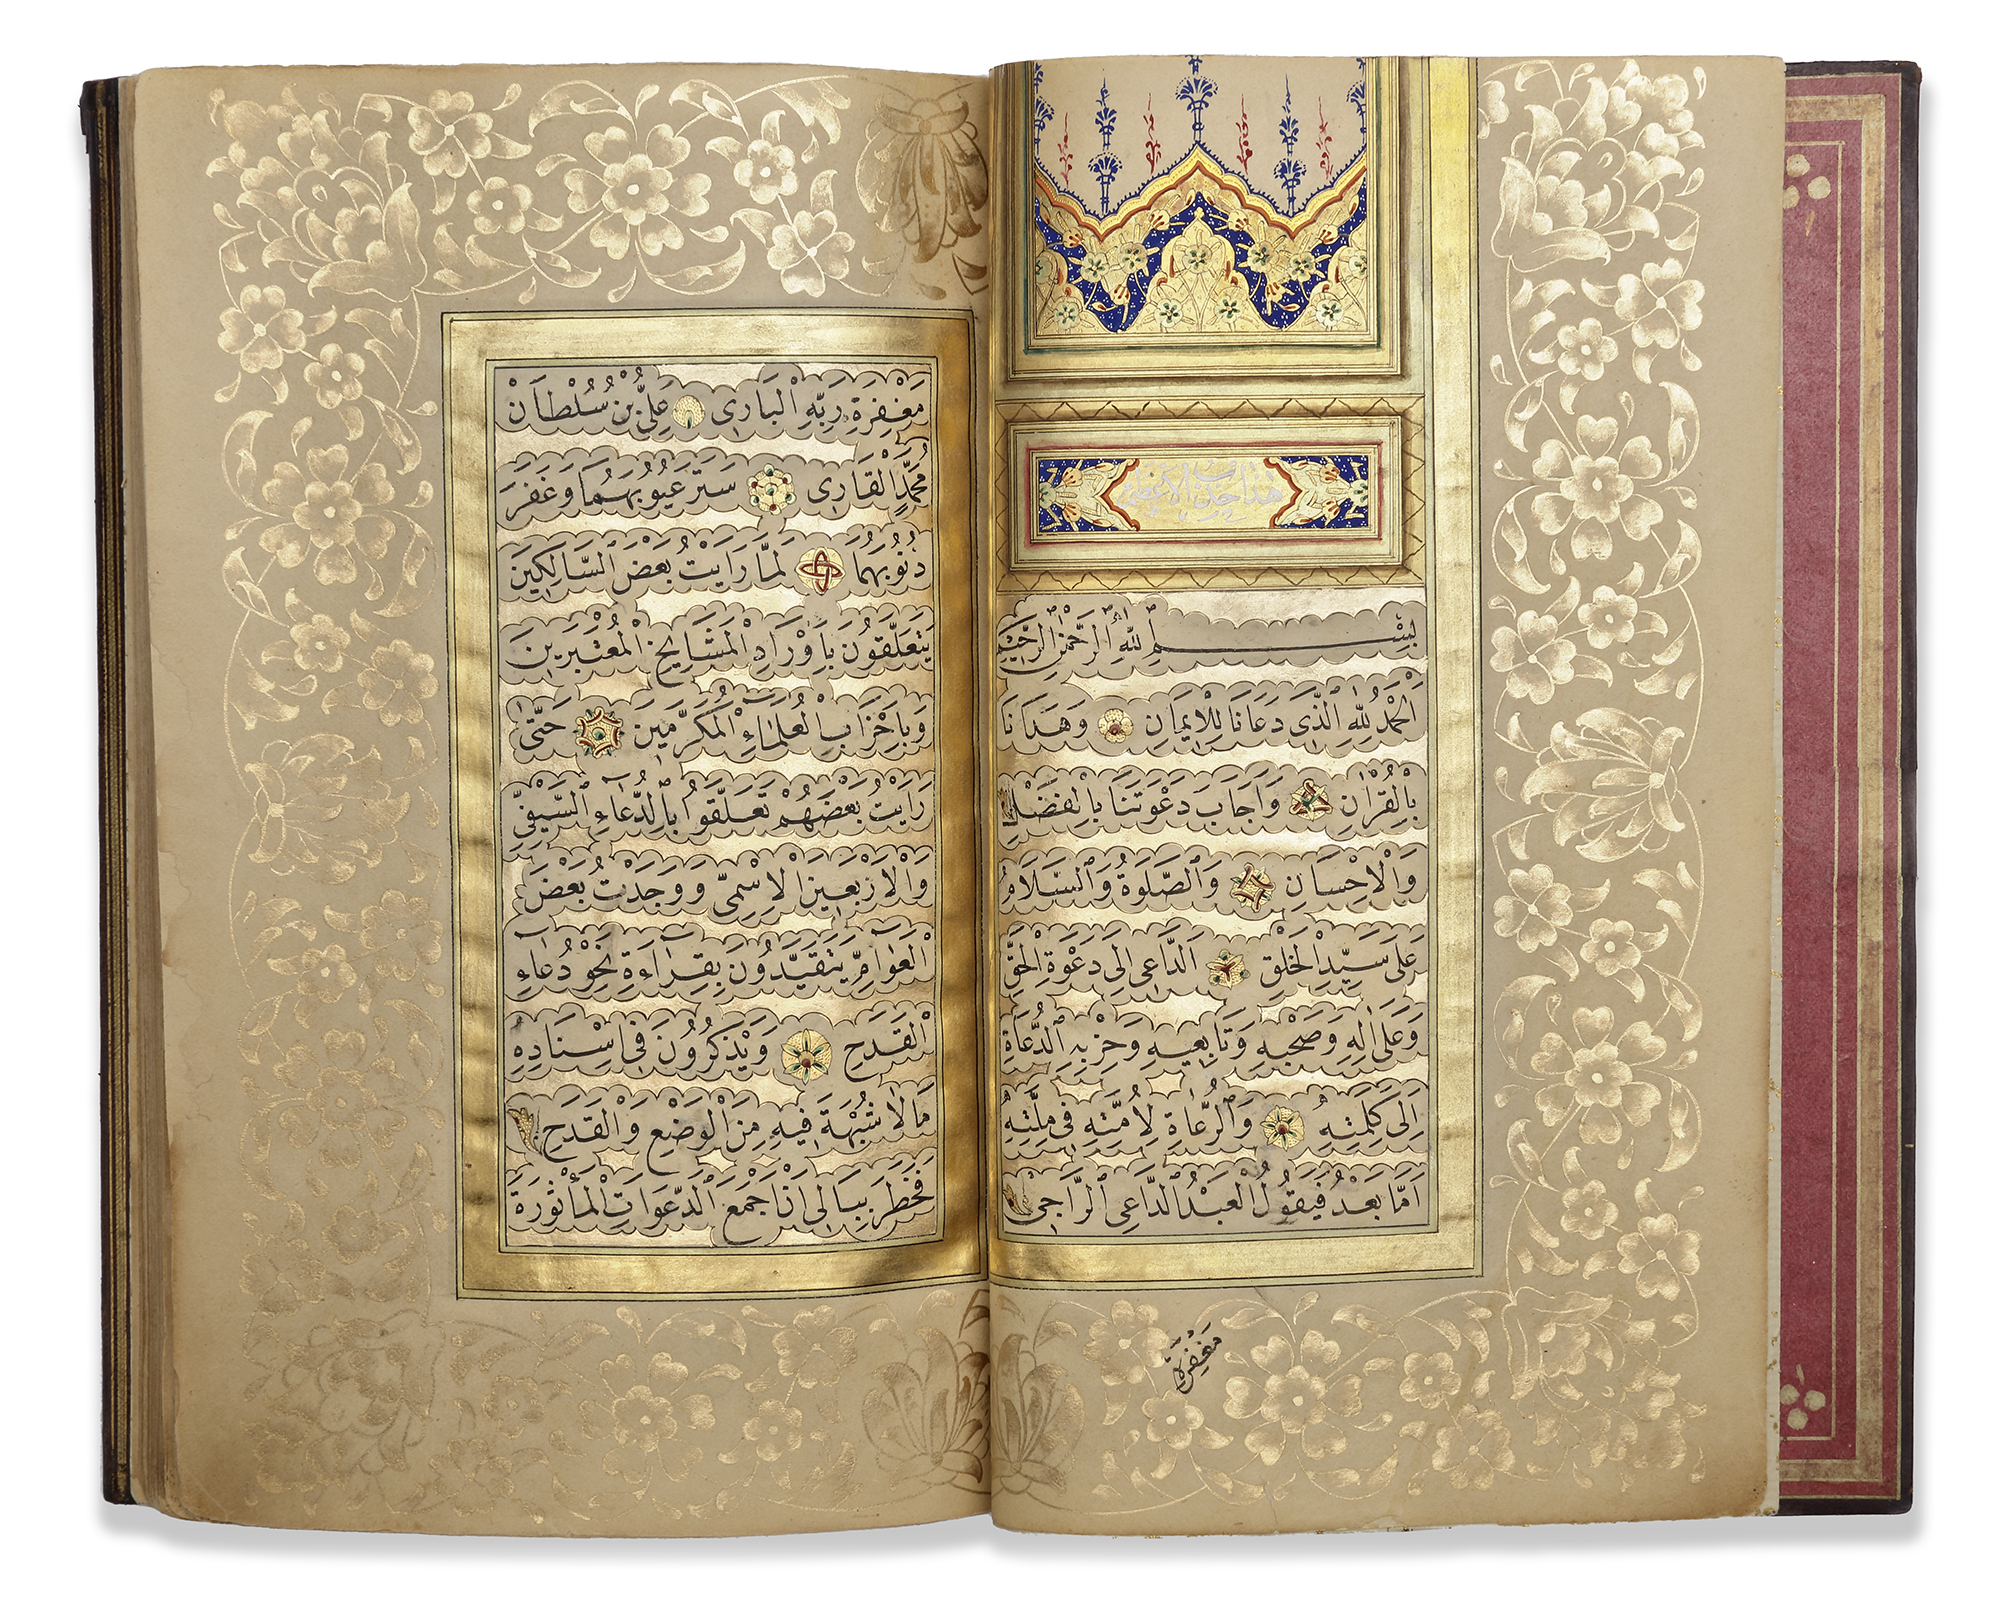 هذا حزب الاعظم
بِسْمِ اللهِ الرَّحْمٰنِ الرَّحِيمِ
اَلْحَمْدُ لِلّٰهِ الَّذِى دَعَانَا لِلْاِيمَانِ وَهَدَانَا
بِالْقُرْاٰنِ وَاَجَابَ دَعْوَتَنَا بِالْفَضْلِ
وَالْاِحْسَانِ وَالصَّلٰوةُ وَالسَّلَامُ
عَلَى سَيِّدِ الْخَلْقِ اَلدَّاعِى اِلَى دَعْوَةِ الْحَقِّ
وَعَلَى اٰلِهِ وَصَحْبِهِ وَتَابِعِيهِ وَحِزْبِهِ الدُّعَاةِ
اِلَى كَلِمَتِهِ وَالرُّعَاةِ لِاُمَّتِهِ فِى مِلَّتِهِ
اَمَّا بَعْدُ فَيَقُولُ الْعَبْدُ الدَّاعِى الرَّاجِى
مَغْفِرَةَ
مَغْفِرَةِ رَبِّهِ الْبَارِى عَلِىُّ بْنُ سُلْطَانْ
مُحَمَّدٍ الْقَارِى سَتَرَ عُيُوبَهُمَا وَغَفَرَ
ذُنُوبَهُمَا لَمَّا رَاَيْتُ بَعْضَ السَّالِكِينَ
يَتَعَلَّقُونَ بِاَوْرَادِ الْمَشَايِخِ الْمُعْتَبَرِينَ
وَبِاَحْزَابِ الْعُلَمَاءِ الْمُكَرَّمِينَ حَتَّى
رَاَيْتُ بَعْضَهُمْ تَعَلَّقُوا بِالدُّعَاءِ السَّيْفِىِّ
وَالْاَرْبَعِينَ الْاِسْمِىِّ وَوَجَدْتُ بَعْضَ
الْعَوَامِّ يَتَقَيَّدُونَ بِقِرَاءَةِ نَحْوِ دُعَاءِ
الْقَدَحِ وَيَذْكُرُونَ فِى اِسْنَادِهِ
مَا لَا شُبْهَةَ فِيهِ مِنَ الْوَضْعِ وَالْقَدَحِ
فَخَطَرَ بِبَالِى اَنْ اَجْمَعَ الدَّعَوَاتِ الْمَأْثُورَةَ